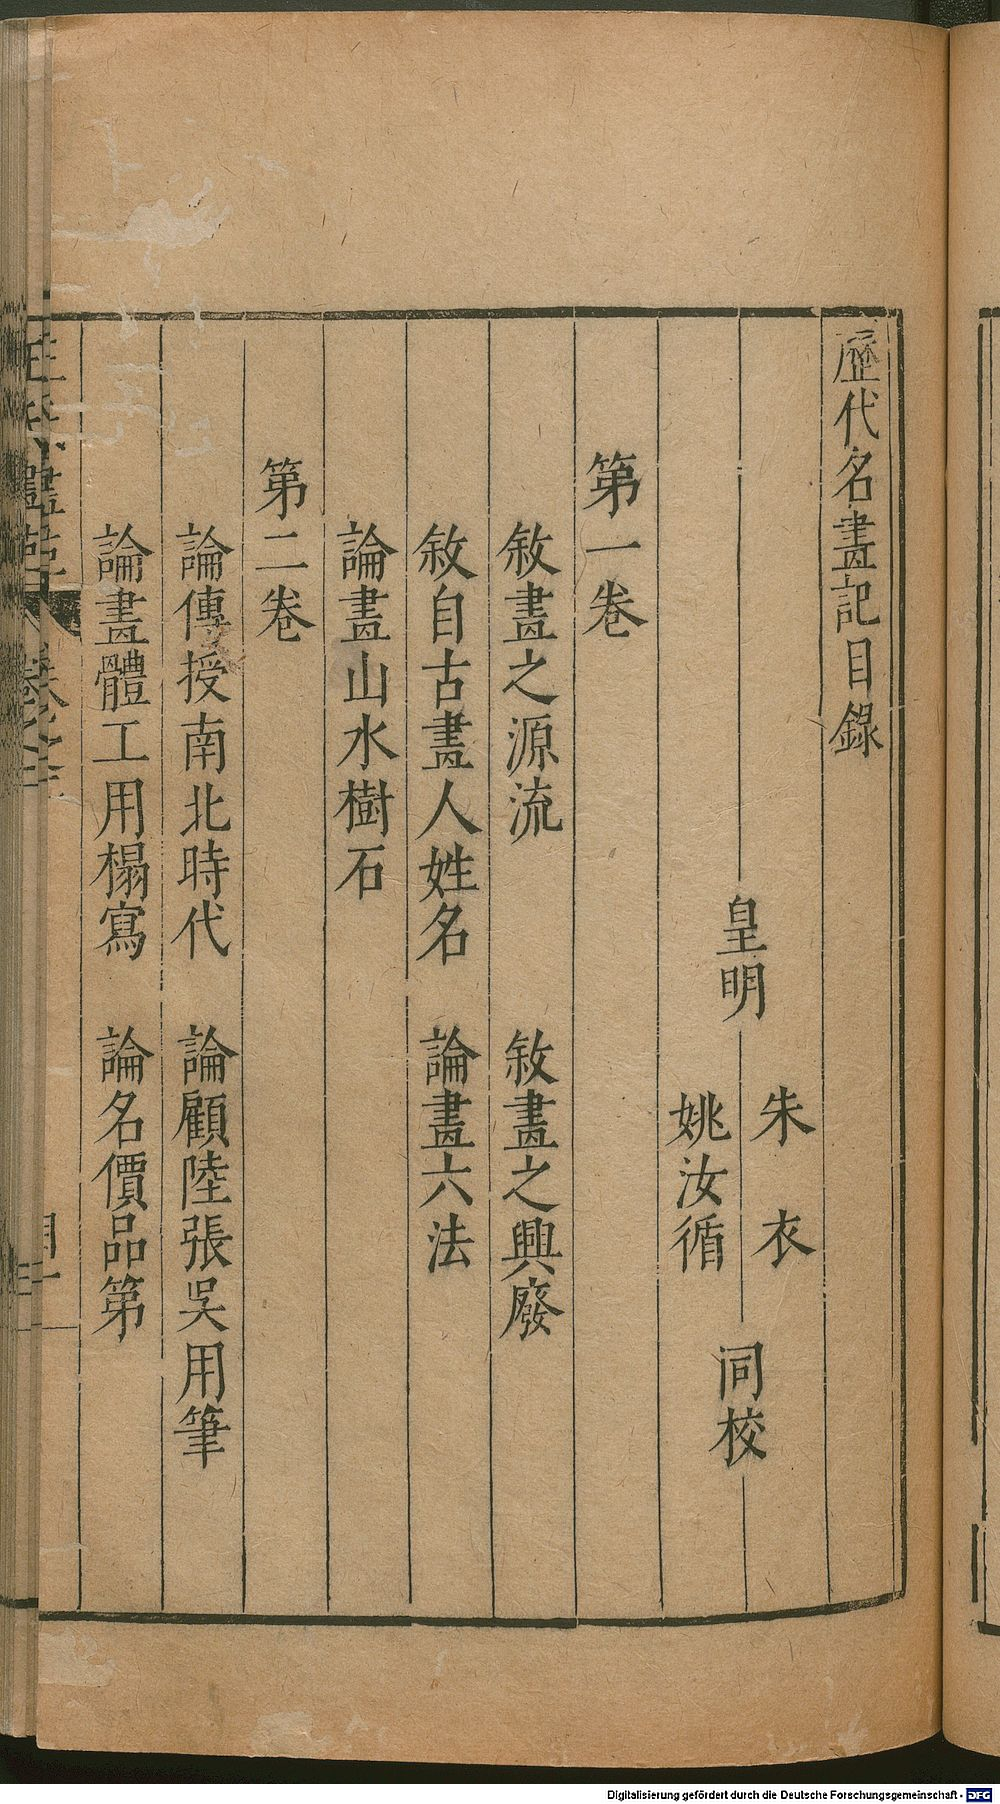 歷代名畫記目錄
皇明
朱衣
姚汝循
同校
第一卷
敘畫之源流 敘畫之興廢
敘自古畫人姓名 論畫六法
論畫山水樹石
第二卷
論傳授南北時代 論顧陸張吳用筆
論畫體工用榻寫 論名價品第
Digitalisierung gefördert durch die Deutsche Forschungsgemeinschaft - DFG